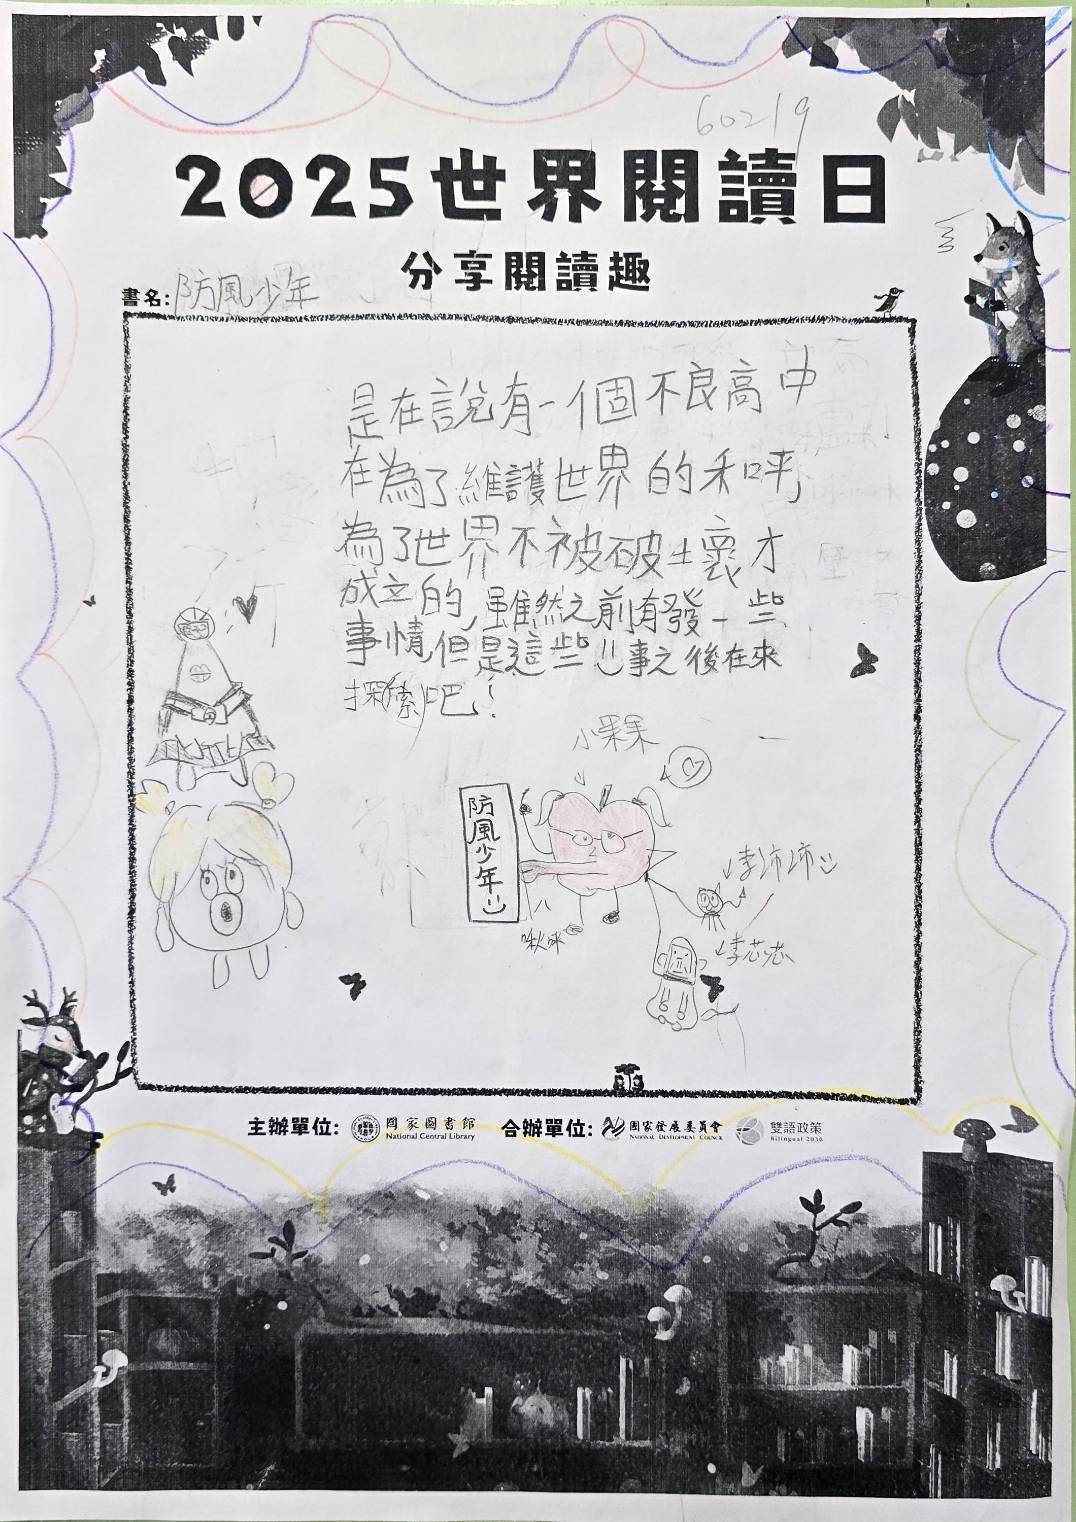 60219
2025世界閱讀日
分享閱讀趣
書名:防風少年
是在說有一個不良高中
在為了維護世界的和呼,
為了世界不被破壞才
成立的,雖然之前有發一些
事情,但是這些事之後在來
探索吧!
小果果
防風少年
李沛沛
啾咪
李芯芯
主辦單位: 國家圖書館 National Central Library 合辦單位: 國家發展委員會 National Development Council 雙語政策 Bilingual 2030